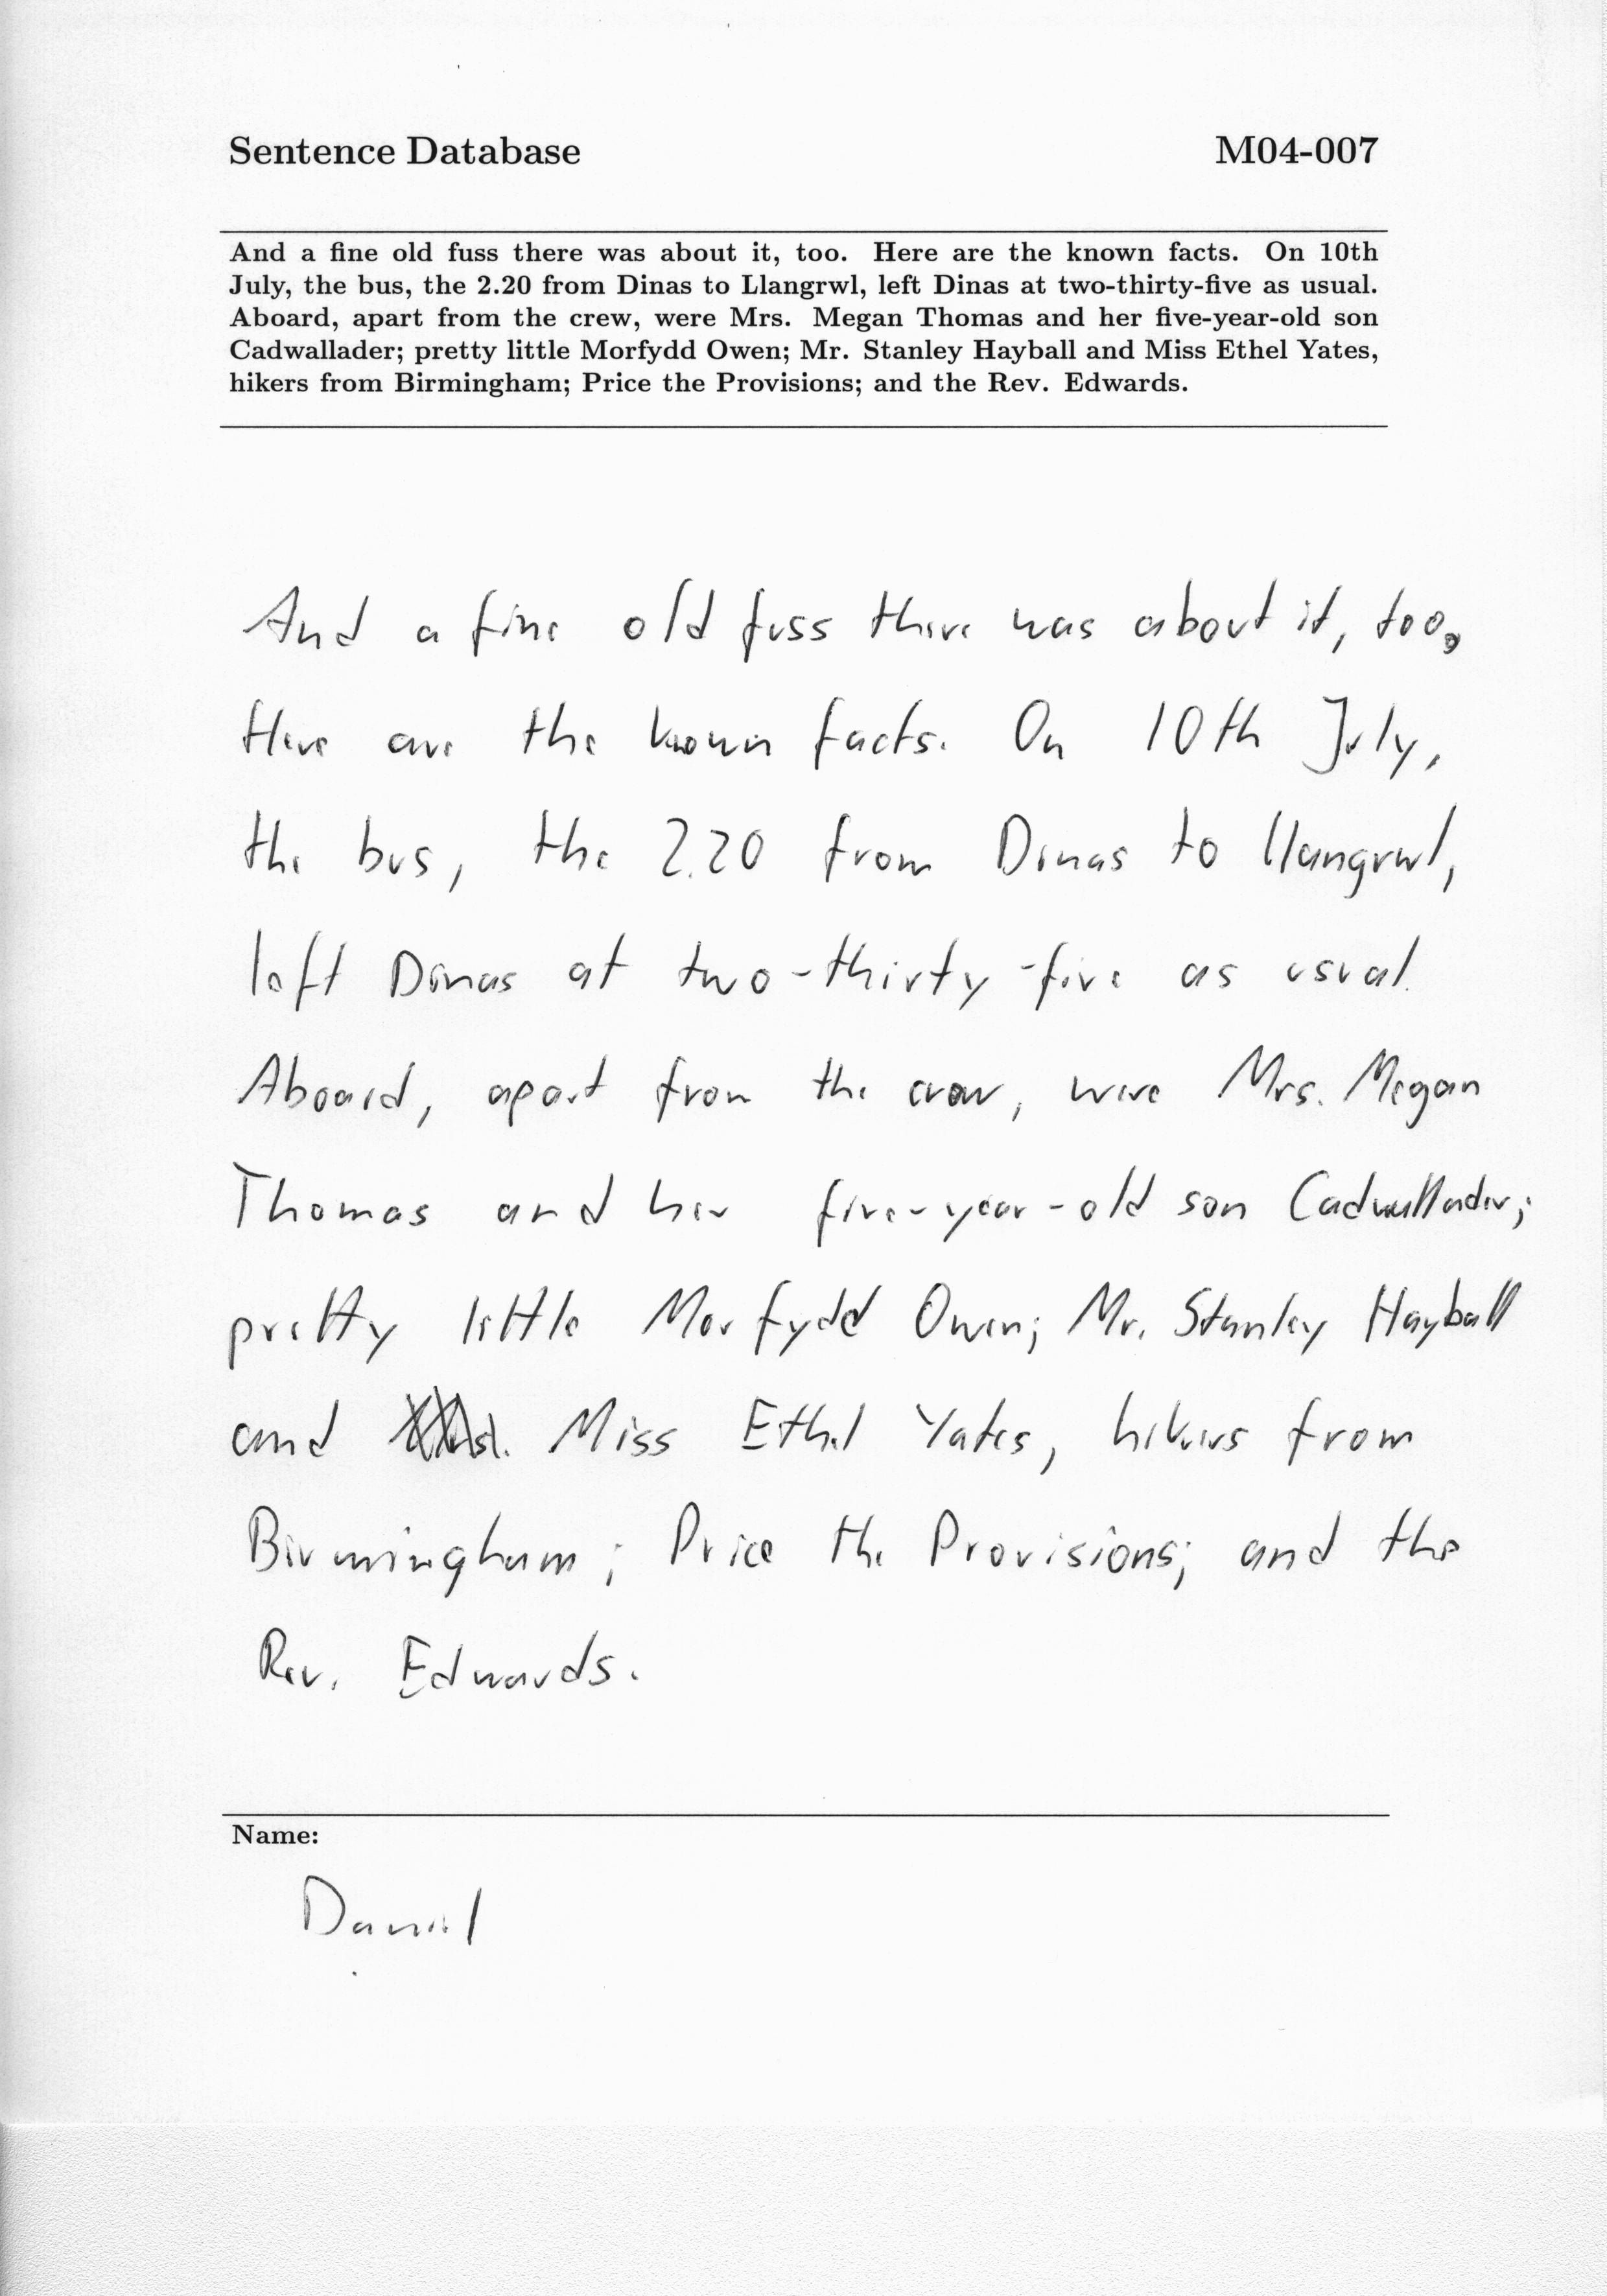 Sentence Database M04-007
And a fine old fuss there was about it, too. Here are the known facts. On 10th
July, the bus, the 2.20 from Dinas to Llangrwl, left Dinas at two-thirty-five as usual.
Aboard, apart from the crew, were Mrs. Megan Thomas and her five-year-old son
Cadwallader; pretty little Morfydd Owen; Mr. Stanley Hayball and Miss Ethel Yates,
hikers from Birmingham; Price the Provisions; and the Rev. Edwards.
And a fine old fuss there was about it, too,
Here are the known facts. On 10th July,
the bus, the 2.20 from Dinas to Llangrwl,
left Dinas at two-thirty-five as usual.
Aboard, apart from the crew, were Mrs. Megan
Thomas and her five-year-old son Cadwallader;
pretty little Morfydd Owen; Mr. Stanley Hayball
and Miss Ethel Yates, hikers from
Birmingham; Price the Provisions; and the
Rev. Edwards.
Name:
Daniel